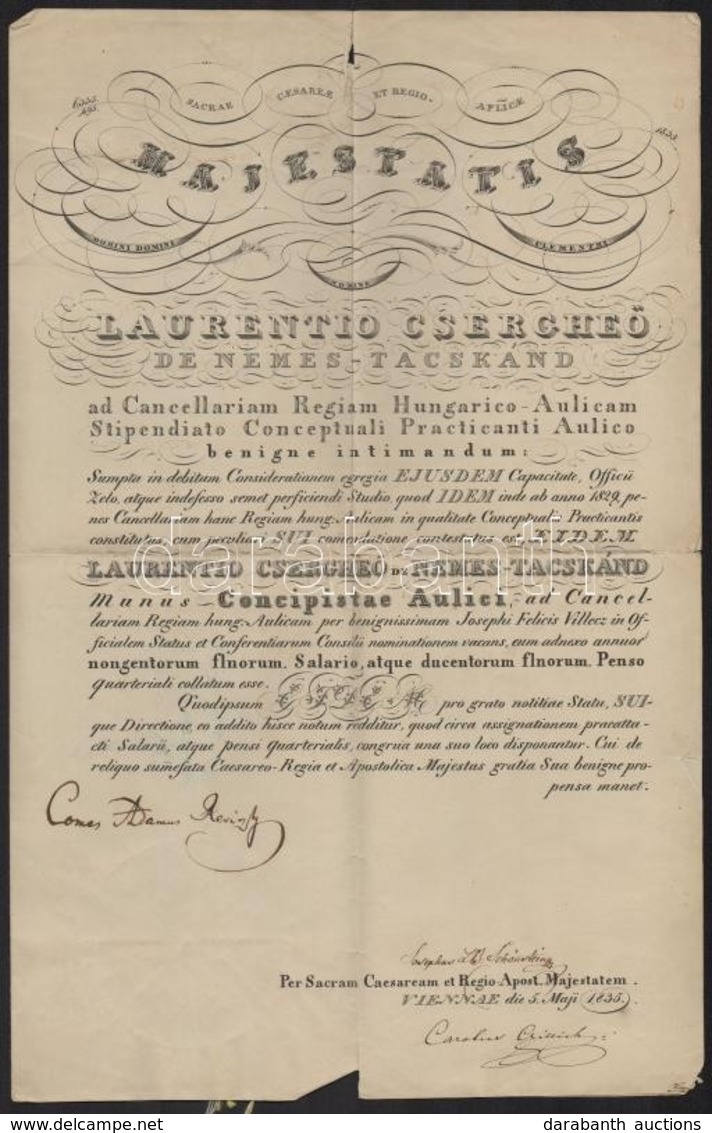 SACRAE CESAREÆ ET REGIO- APLICÆ
6555.
495.
1835.
MAJESTATIS
DOMINI DOMINI CLEMENTMI
NOMINE
LAURENTIO CSERGHEÖ
DE NEMES-TACSKAND
ad Cancellariam Regiam Hungarico-Aulicam
Stipendiato Conceptuali Practicanti Aulico
benigne intimandum:
Sumpta in debitam Considerationem egregia EJUSDEM Capacitate, Officii
Zelo, atque indefesso semet perficiendi Studio, quod IDEM inde ab anno 1829, pe-
nes Cancellariam hanc Regiam hung: Aulicam in qualitate Conceptualis Practicantis
constitutus, cum peculiari SUI comendatione contestatus est, EIDEM
LAURENTIO CSERGHEÖ DE NEMES-TACSKÁND
Munus Concipistae Aulici, ad Cancel-
lariam Regiam hung: Aulicam per benignissimam Josephi Felicis Villecz in Of-
ficialem Status et Conferentiarum Consilii nominationem vacans, cum adnexo annuor
nongentorum flnorum. Salario, atque ducentorum flnorum. Penso
quarteriali collatum esse.
Quodipsum pro grato notitiae Statu, SUI-
que Directione, eo addito hisce notum redditur, quod circa assignationem praeatta-
cti Salarii, atque pensi quarterialis, congrua una suo loco disponantur. Cui de
reliquo sumefata Caesareo-Regia et Apostolica Majestas gratia Sua benigne pro-
pensa manet.
Comes Adamus Reviczky
Josephus
Per Sacram Caesaream et Regio Apost. Majestatem.
VIENNAE die 5. Maji 1835.
Carolus
darabanth
darabanth auctions